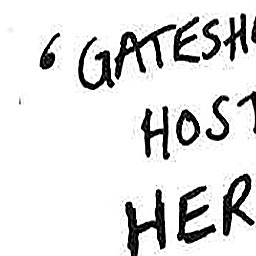 ‘GATESH
HOST
HER